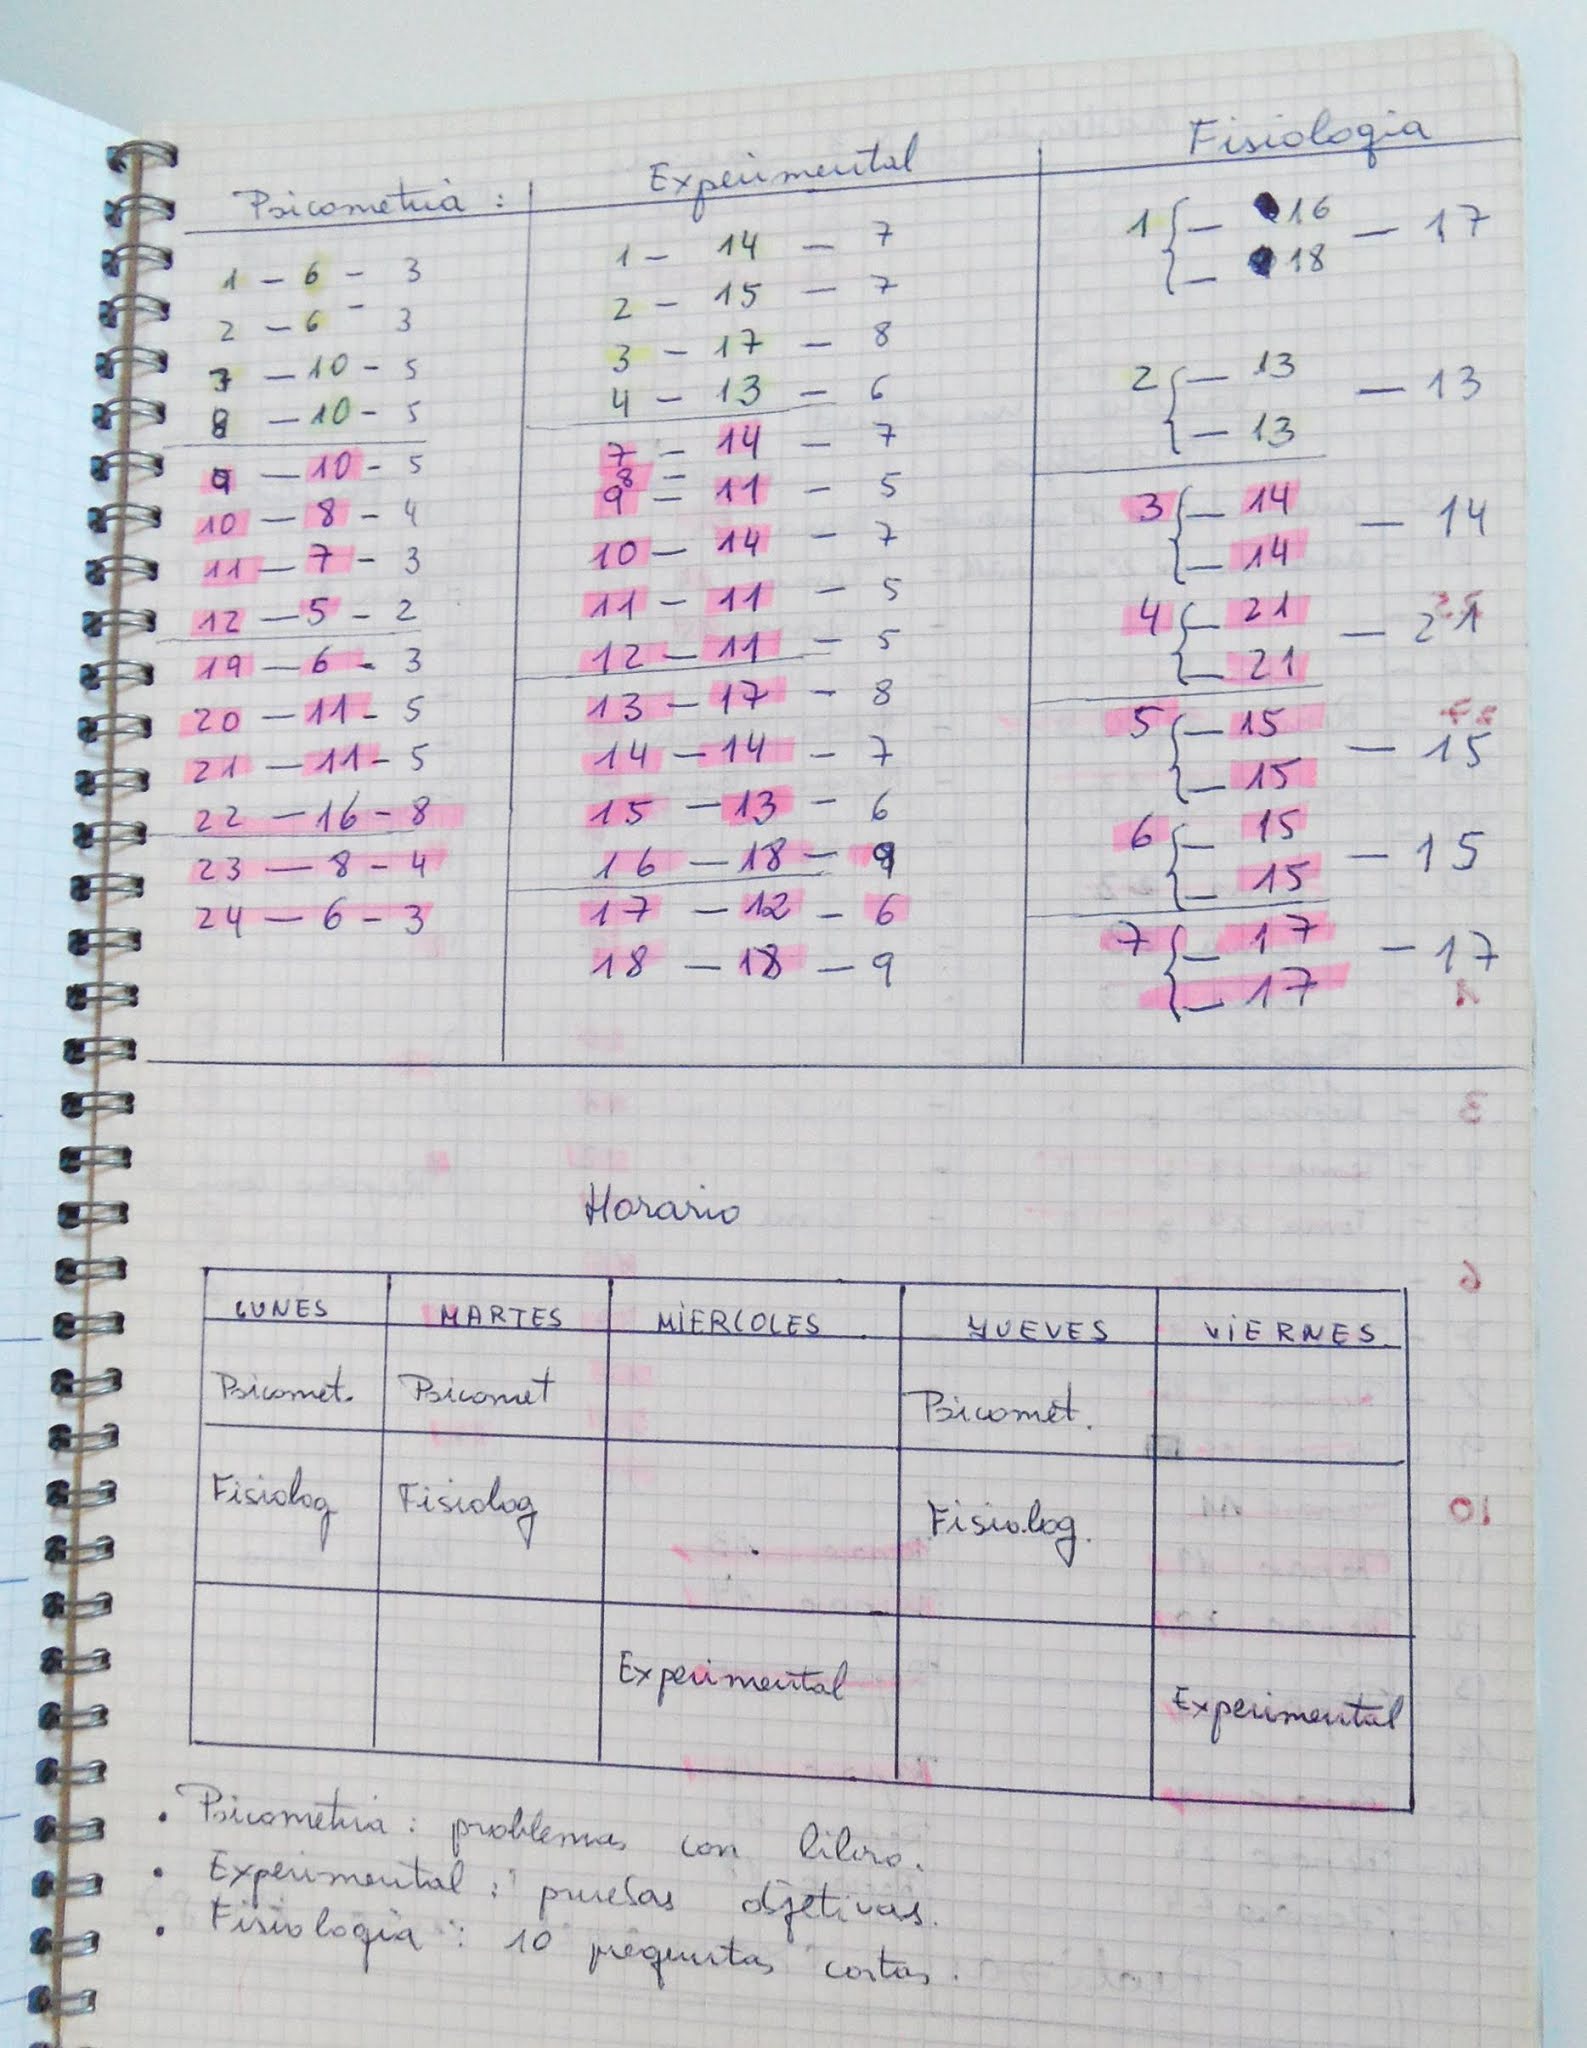 Psicometria :
1 - 6 - 3
2 - 6 - 3
7 - 10 - 5
8 - 10 - 5
9 - 10 - 5
10 - 8 - 4
11 - 7 - 3
12 - 5 - 2
19 - 6 - 3
20 - 11 - 5
21 - 11 - 5
22 - 16 - 8
23 - 8 - 4
24 - 6 - 3
Experimental
1 - 14 - 7
2 - 15 - 7
3 - 17 - 8
4 - 13 - 6
7 - 14 - 7
8 -
9 - 11 - 5
10 - 14 - 7
11 - 11 - 5
12 - 11 - 5
13 - 17 - 8
14 - 14 - 7
15 - 13 - 6
16 - 18 - 9
17 - 12 - 6
18 - 18 - 9
Fisiologia
1 { - 16 - 17
- 18
2 { - 13 - 13
- 13
3 { - 14 - 14
- 14
4 { - 21 - 21
- 21
5 { - 15 - 15
- 15
6 { - 15 - 15
- 15
7 { - 17 - 17
- 17
Horario
LUNES MARTES MIERCOLES JUEVES VIERNES
Psicomet. Psicomet Psicomet.
Fisiolog Fisiolog Fisiolog.
Experimental Experimental
• Psicometria : problemas con libro.
• Experimental : pruebas objetivas.
• Fisiologia : 10 preguntas cortas.